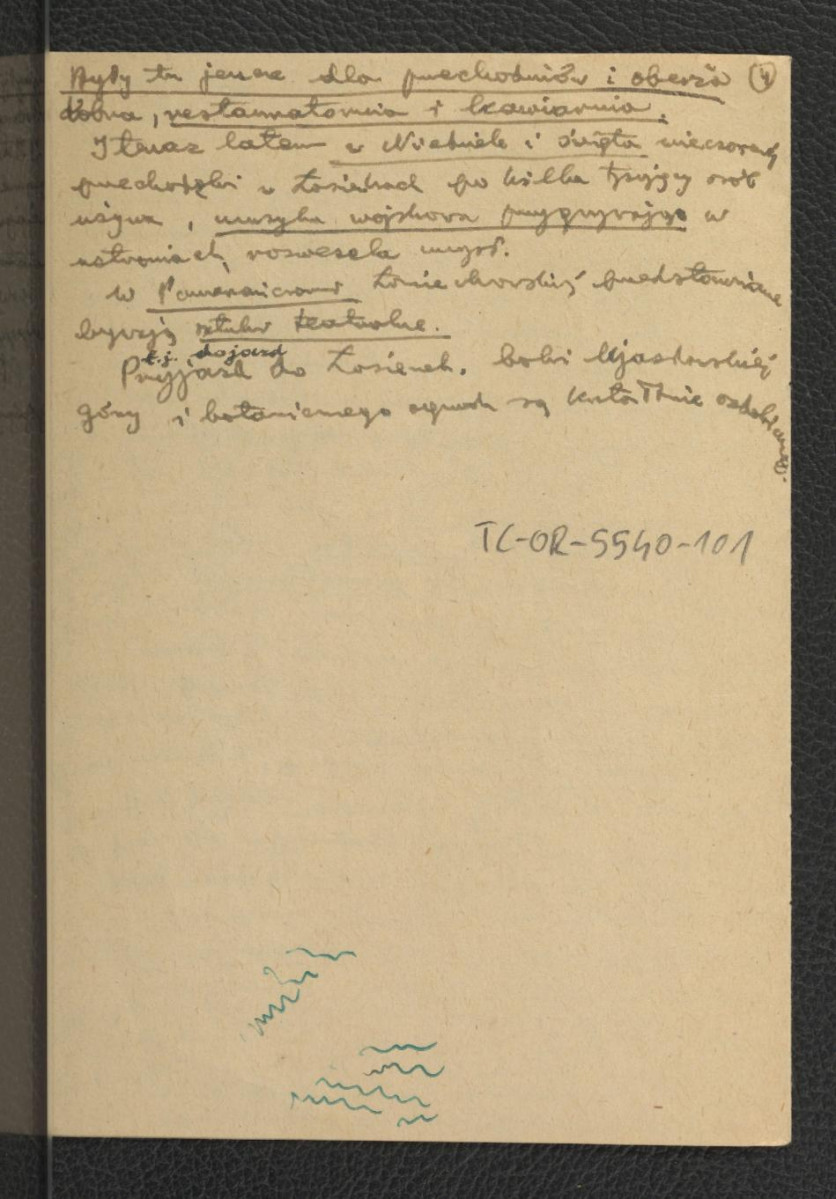 Były tu jeszcze dla przechodniów i oberża (4)
dobra, restauratornia i kawiarnia.
I teraz latem w Niedziele i święta wieczorową
przechadzki w Łazienkach po kilka tysięcy osób
używa, muzyka wojskowa przygrywając w
ustroniach, rozwesela umysł.
W Pomarańczarni Łazienkowskiej przedstawiane
bywają sztuki teatralne.
t.j. dojazd
Przyjazd do Łazienek. boki Ujazdowskiej
góry i botanicznego ogrodu są kształtnie ozdobione.
TC-OR-5540-101